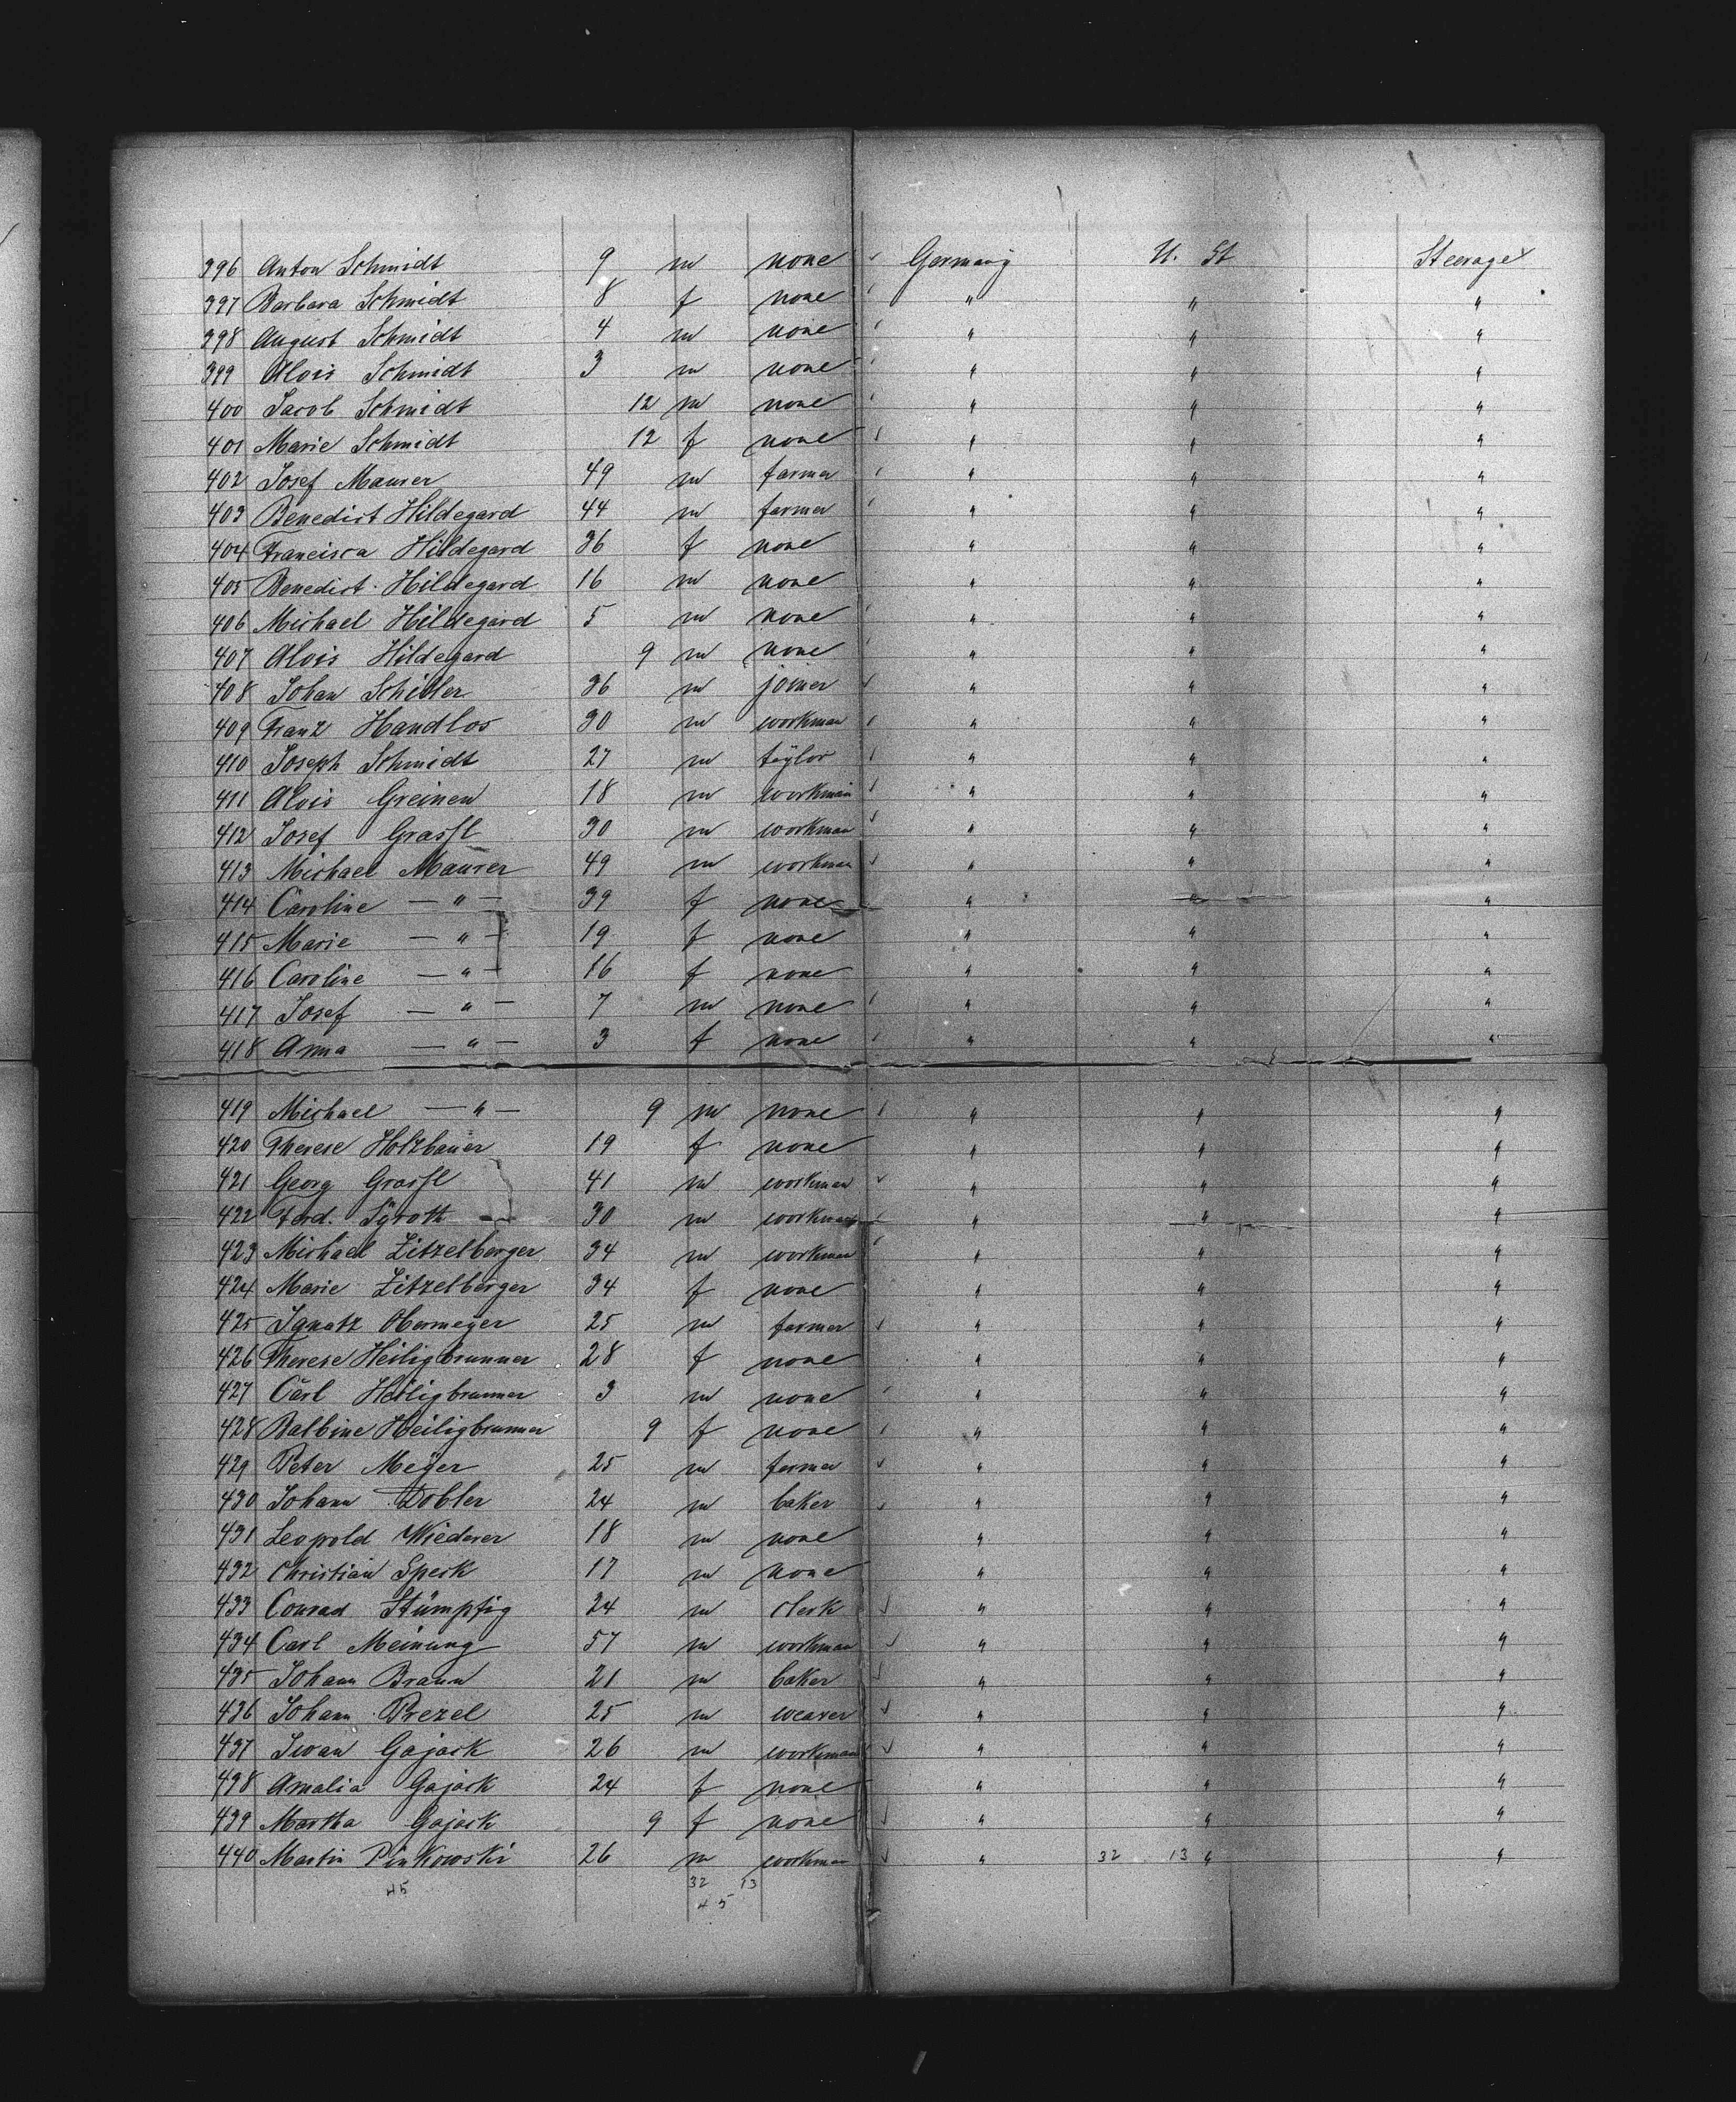 396 Anton Schmidt 9 m none Germany U. St Steerage
397 Barbara Schmidt 8 f none " " "
398 August Schmidt 4 m none " " "
399 Alois Schmidt 3 m none " " "
400 Jacob Schmidt 12 m none " " "
401 Marie Schmidt 12 f none " " "
402 Josef Maurer 49 m farmer " " "
403 Benedict Hildegard 44 m farmer " " "
404 Francisca Hildegard 36 f none " " "
405 Benedict Hildegard 16 m none " " "
406 Michael Hildegard 5 m none " " "
407 Alois Hildegard 9 m none " " "
408 Johan Schiller 36 m joiner " " "
409 Franz Handlos 30 m workman " " "
410 Joseph Schmidt 27 m taylor " " "
411 Alois Greinen 18 m workman " " "
412 Josef Grassl 30 m workman " " "
413 Michael Maurer 49 m workman " " "
414 Caroline — " — 39 f none " " "
415 Marie — " — 19 f none " " "
416 Caroline — " — 16 f none " " "
417 Josef — " — 7 m none " " "
418 Anna — " — 3 f none " " "
419 Michael — " — 9 m none " " "
420 Therese Holzbauer 19 f none " " "
421 Georg Grassl 41 m workman " " "
422 Ferd. Syroth 30 m workman " " "
423 Michael Zitzelberger 34 m workman " " "
424 Marie Zitzelberger 34 f none " " "
425 Ignatz Obermeyer 25 m farmer " " "
426 Therese Heiligbrunner 28 f none " " "
427 Carl Heiligbrunner 3 m none " " "
428 Balbine Heiligbrunner 9 f none " " "
429 Peter Meÿer 25 m farmer " " "
430 Johann Dobler 24 m baker " " "
431 Leopold Wiederer 18 m none " " "
432 Christian Speck 17 m none " " "
433 Conrad Stümpfig 24 m clerk " " "
434 Carl Meinung 57 m workman " " "
435 Johann Braun 21 m baker " " "
436 Johann Prezel 25 m weaver " " "
437 Iwan Gajack 26 m workman " " "
438 Amalia Gajack 24 f none " " "
439 Martha Gajack 9 f none " " "
440 Martin Pinkowski 26 m workman " 32 13 " "
45 32 13
45